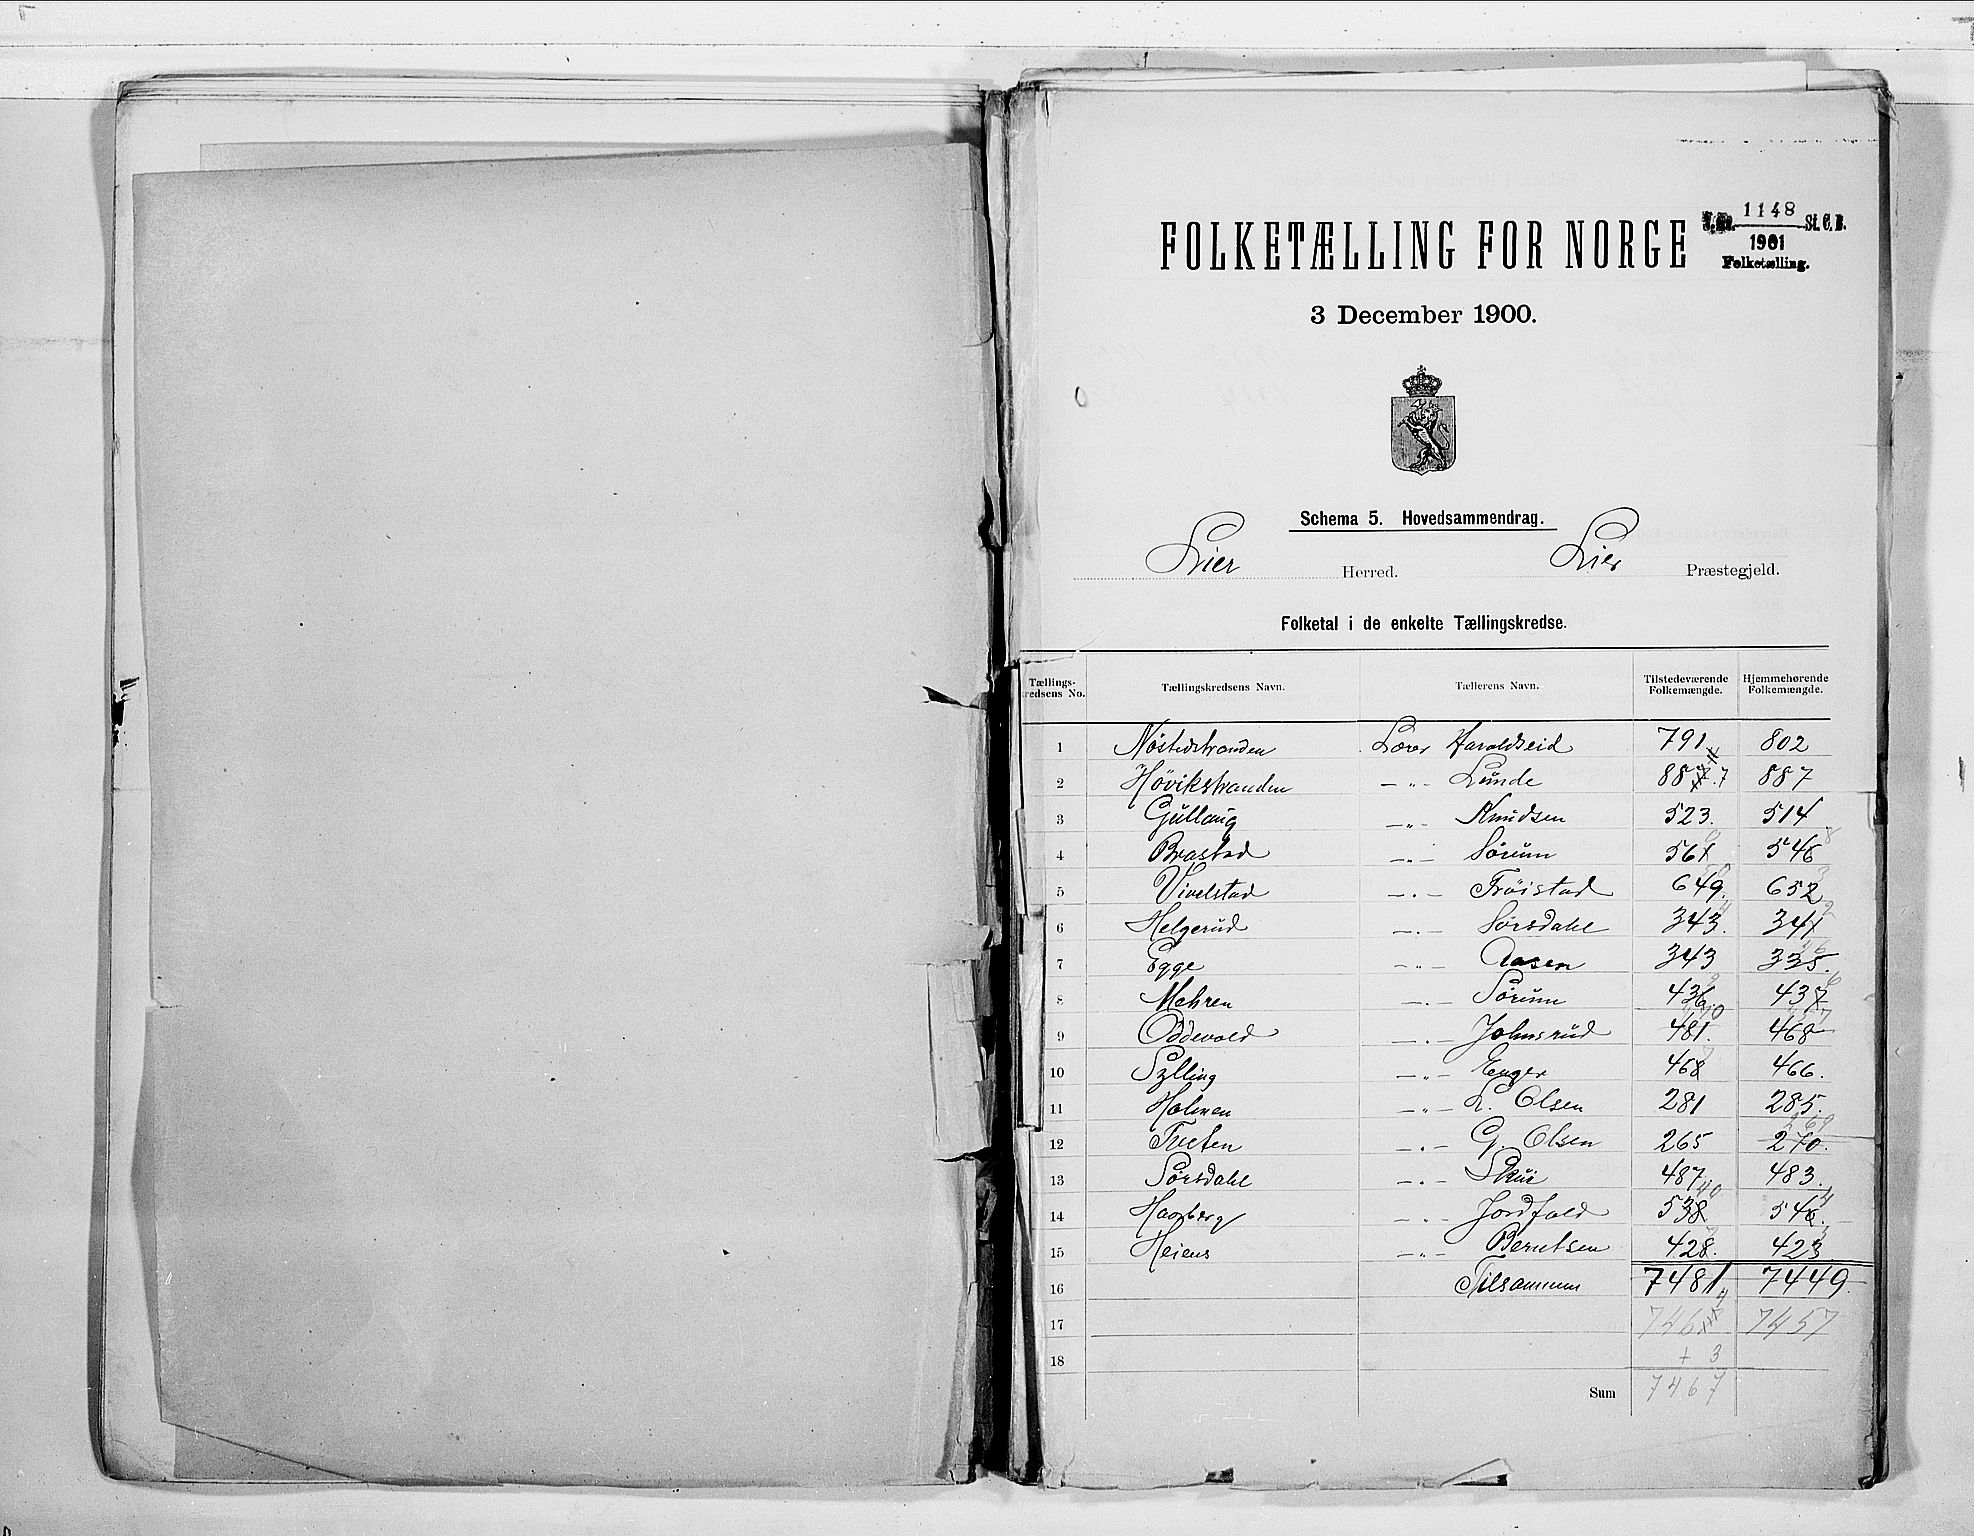 FOLKETÆLLING FOR NORGE
J. No. 1148 St. C. B.
1901
Folketælling.
3 December 1900.
Schema 5. Hovedsammendrag.
Lier Herred. Lier Præstegjeld.
Folketal i de enkelte Tællingskredse.
Tællings-kredsens No. Tællingskredsens Navn. Tællerens Navn. Tilstedeværende Folkemængde. Hjemmehørende Folkemængde.
1 Nöstedstranden Lærer Haraldseid 791 802
2 Hövikstranden —"— Lunde 887 887
3 Gullaug —"— Knudsen 523. 514
4 Brastad —"— Sörum 561 546
5 Vivelstad —"— Tröistad 649 652
6 Helgerud —"— Sörsdahl 343. 341
7 Egge —"— Aasen 343 335.
8 Mehren —"— Sörum 436. 437
9 Oddevold —"— Johnsrud 481. 468
10 Sylling —"— Enger 468 466.
11 Holmen —"— L. Olsen 281 285.
12 Tveten —"— G. Olsen 265 270.
13 Sörsdahl —"— Skui 487 483.
14 Haorberg —"— Jordfald 538 546.
15 Heiens —"— Berntsen 428. 423
16 Tilsammen 7481 7449.
17 746 7457
18 + 3
Sum 7467